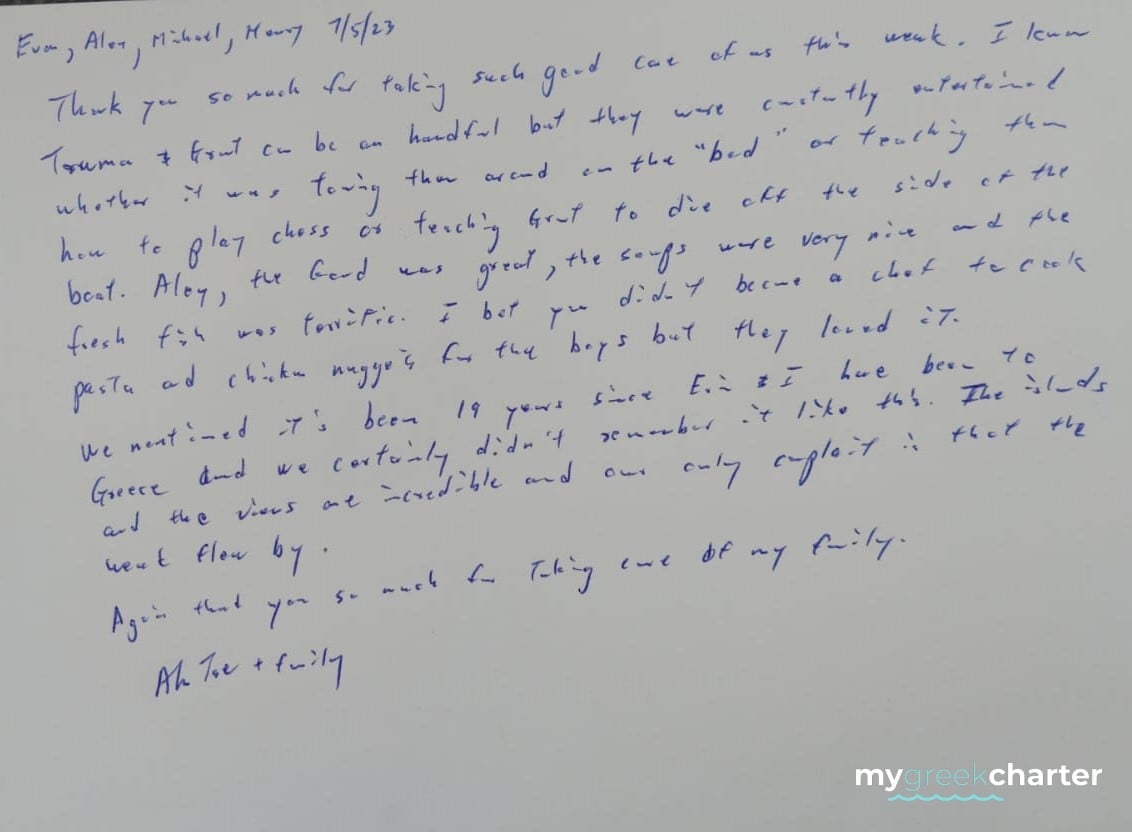 Evan, Alex, Michael, Henry 7/5/23
Thank you so much for taking such good care of us this week. I know
& Grant can be an handful but they were constantly entertained
whether it was towing them around on the "bed" or teaching them
how to play chess or teaching Grant to dive off the side of the
boat. Alex, the food was great, the soups were very nice and the
fresh fish was terrific. I bet you didn't become a chef to cook
pasta and chicken nuggets for the boys but they loved it.
We mentioned it's been 19 years since & I have been to
Greece and we certainly didn't remember it like this. The islands
and the views are incredible and our only complaint is that the
week flew by.
Again thank you so much for taking care of my family.
+ family
mygreekcharter